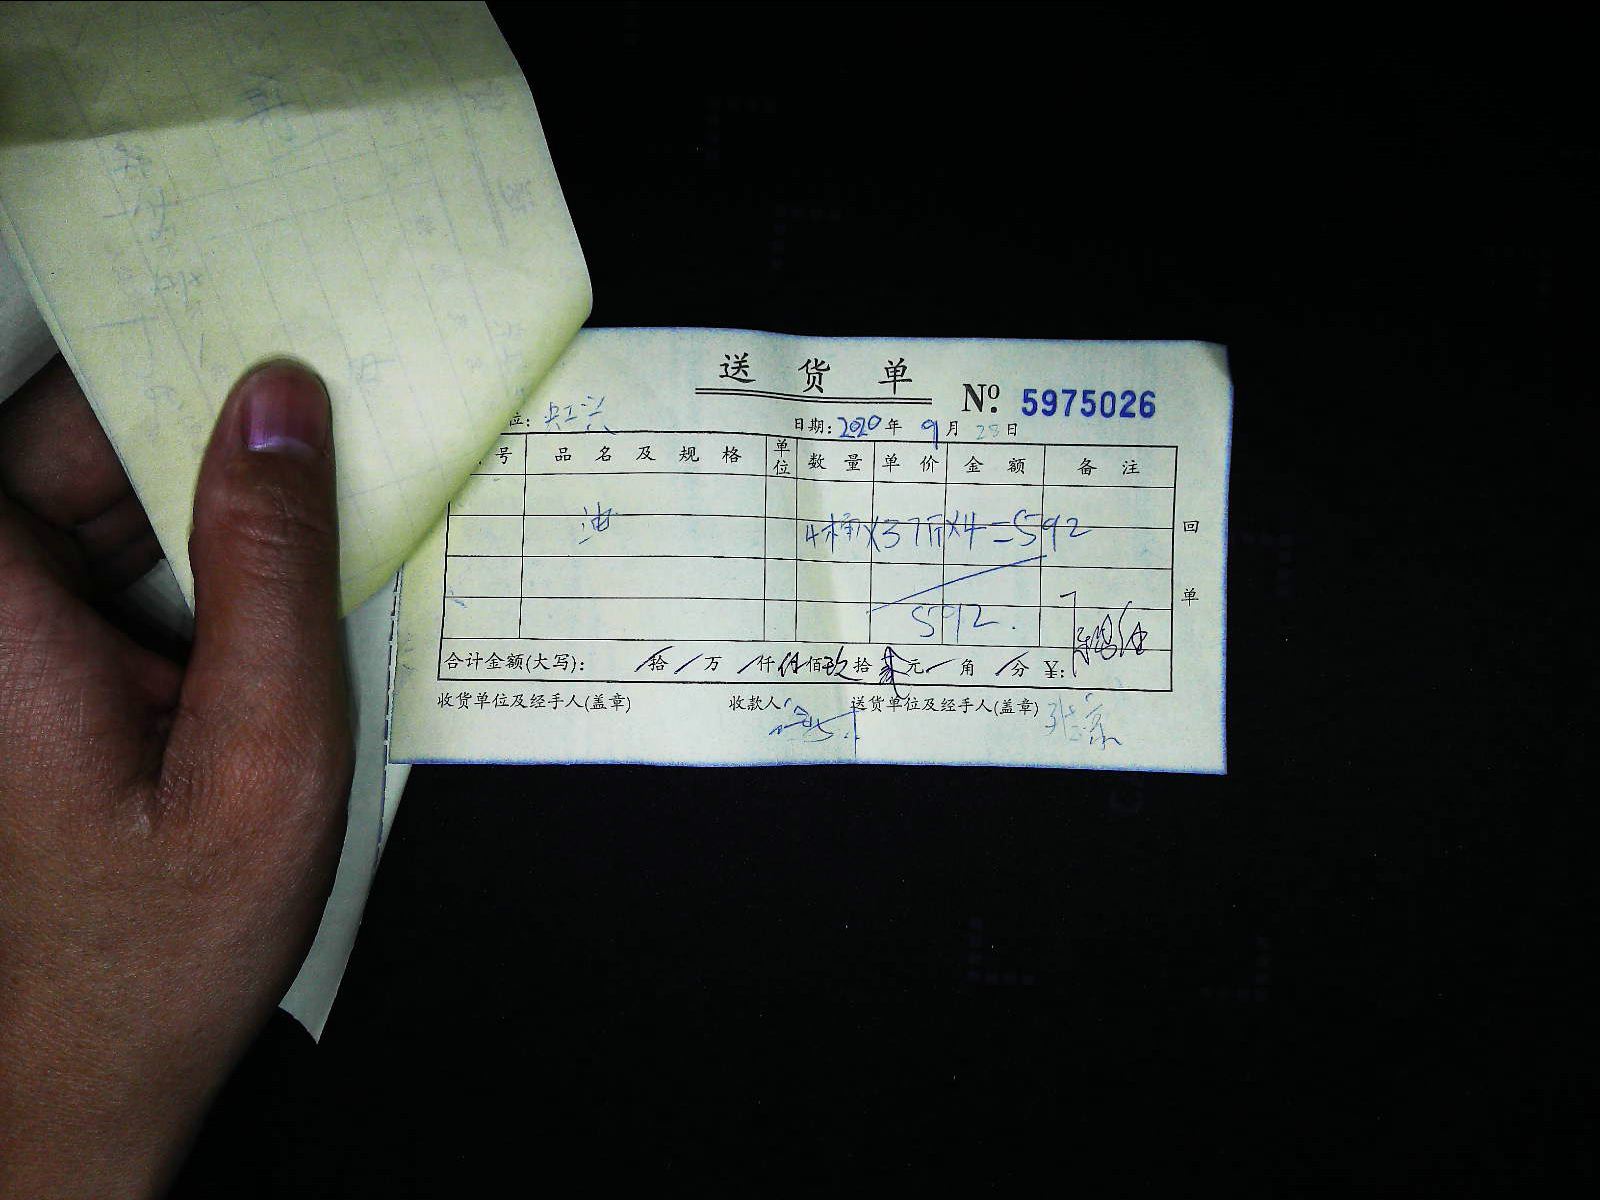 送货单
No. 5975026
位:
日期: 2020 年 9 月 28 日
号 品名及规格 单位 数量 单价 金额 备注
油 4桶×37斤×4=592
592.
回单
合计金额(大写): / 拾 / 万 / 仟 伍 佰 玖 拾 贰 元 / 角 / 分 ¥:
收货单位及经手人(盖章) 收款人 送货单位及经手人(盖章)